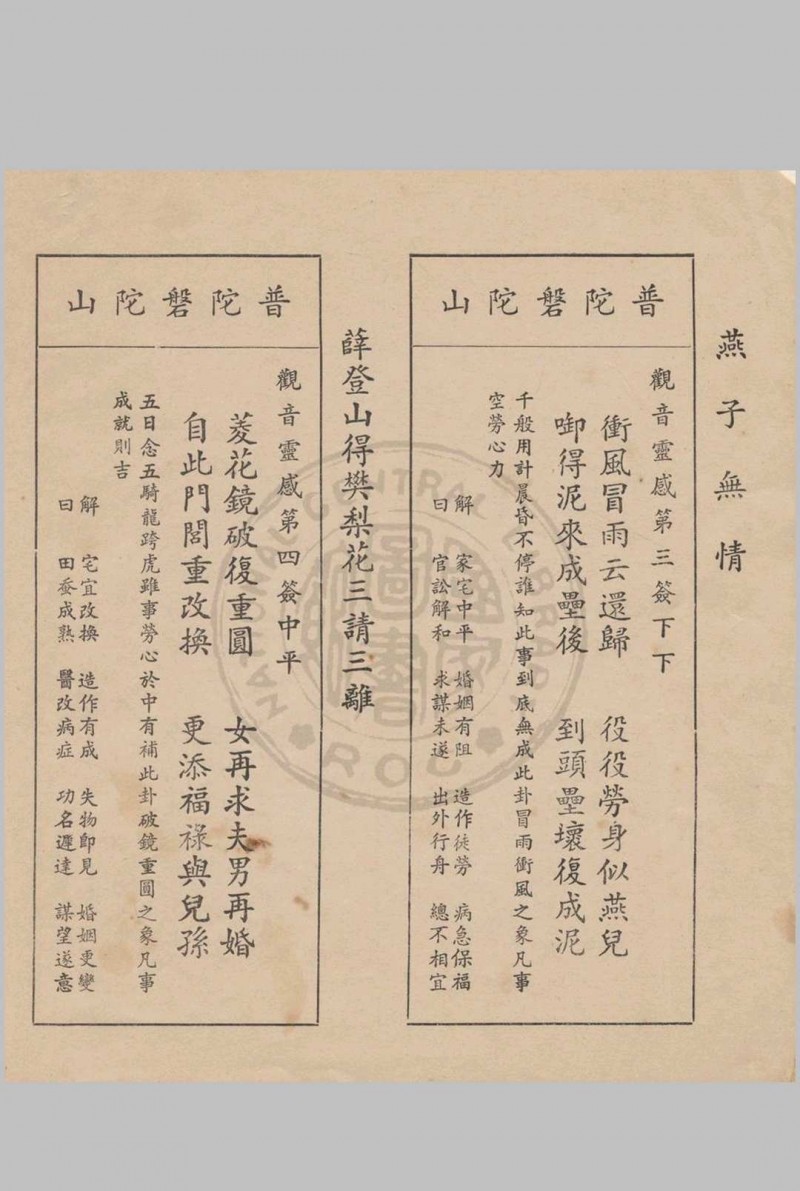 燕子無情
普陀磐陀山
觀音靈感第三簽下下
衝風冒雨云還歸　役役勞身似燕兒
啣得泥來成壘後　到頭壘壞復成泥
千般用計晨昏不停誰知此事到底無成此卦冒雨衝風之象凡事
空勞心力
解　家宅中平　婚姻有阻　造作徒勞　病急保福
曰　官訟解和　求謀未遂　出外行舟　總不相宜
薛登山得樊梨花三請三離
普陀磐陀山
觀音靈感第四簽中平
菱花鏡破復重圓　女再求夫男再婚
自此門閭重改換　更添福祿與兒孫
五日念五騎龍跨虎雖事勞心於中有補此卦破鏡重圓之象凡事
成就則吉
解　宅宜改換　造作有成　失物即見　婚姻更變
曰　田蚕成熟　醫改病症　功名遲達　謀望遂意
NATIONAL CENTRAL LIBRARY
ROC